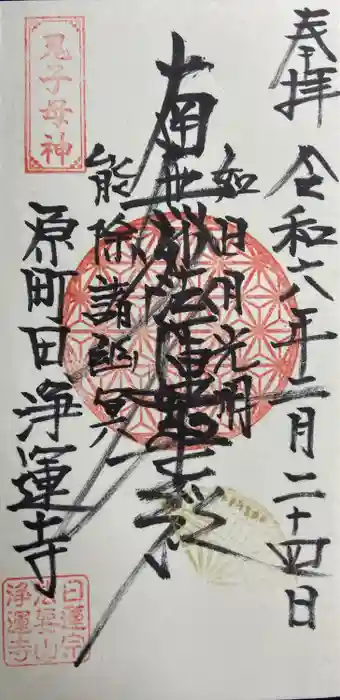 奉拝 令和六年二月二十四日
如日月光明
南無妙法蓮華経
能除諸幽冥
鬼子母神
原町田浄運寺
日蓮宗
法要山
浄運寺